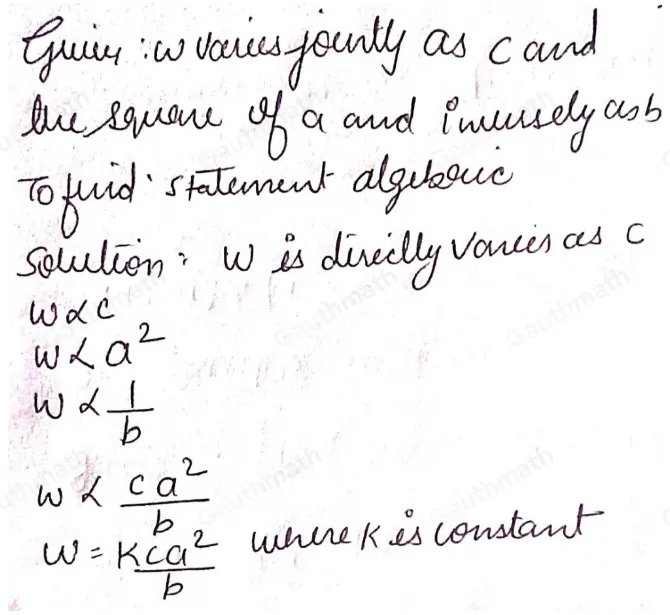 Given : w varies jointly as c and
the square of a and inversely as b
To find : statement algebraic
Solution : W is directly varies as c
w ∝ c
w ∝ a²
w ∝ 1/b
w ∝ ca²/b
w = Kca²/b where K is constant
Gauthmath